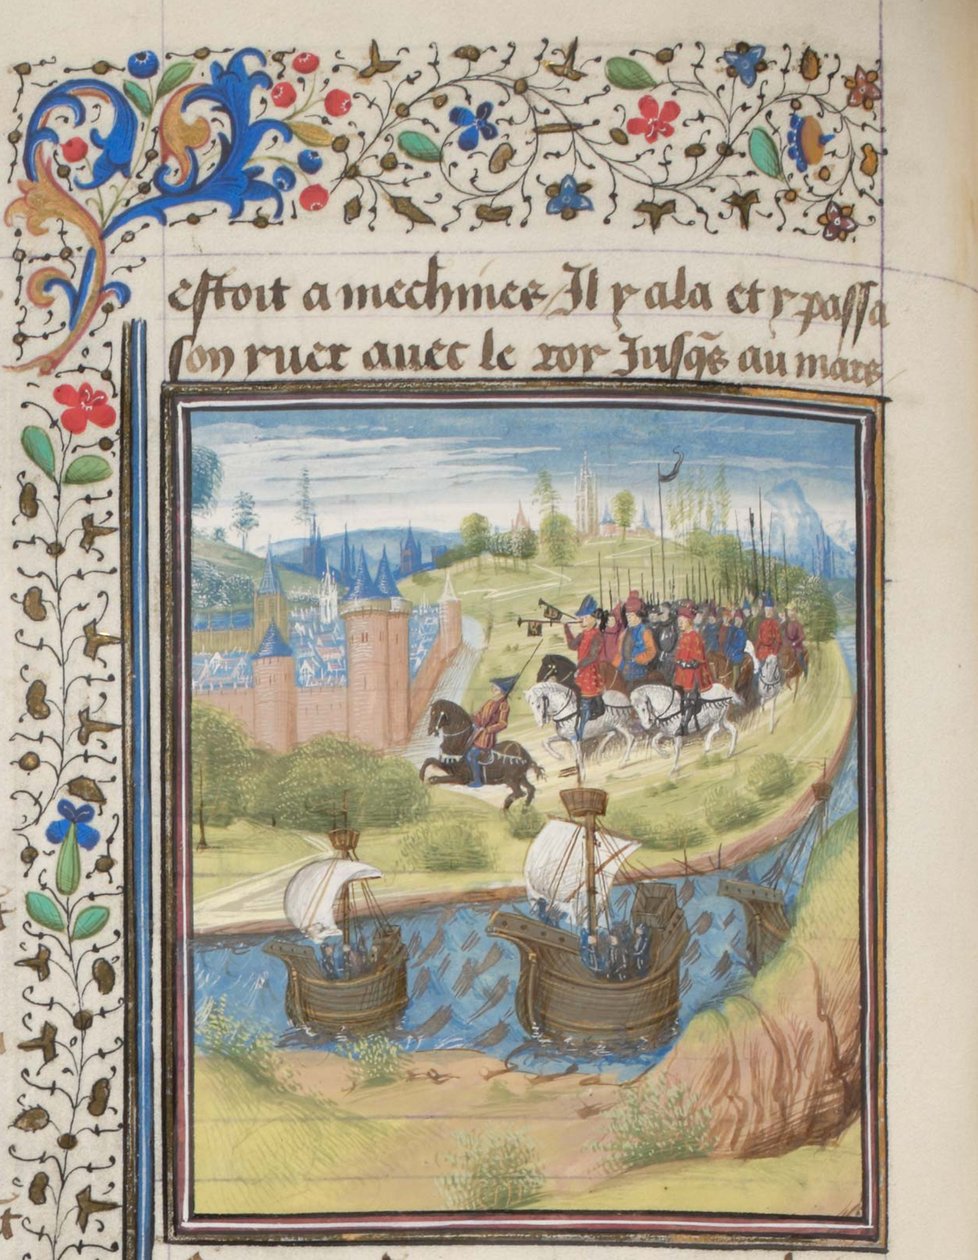 estoit a mechines Il y ala et y passa
son yuer auec le roy Jusq̄s au mars